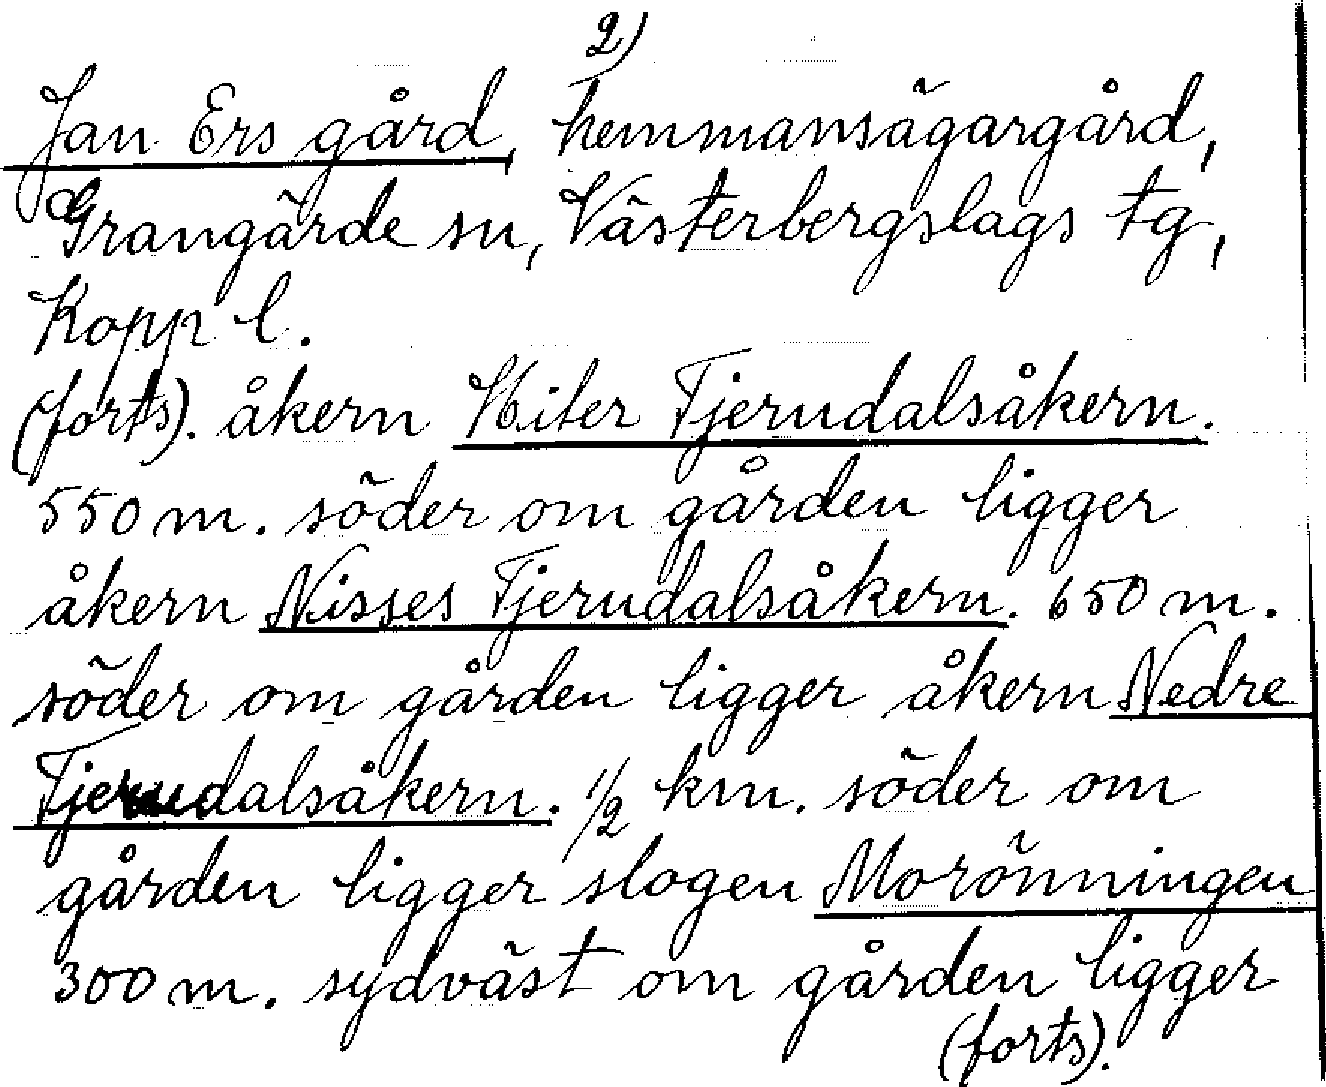 2)
Jan Ers gård, hemmansägargård,
Grangärde sn, Västerbergslags tg,
Kopp l.
(forts). åkern Hiter Tjerndalsåkern.
550 m. söder om gården ligger
åkern Nisses Tjerndalsåkern. 650 m.
söder om gården ligger åkern Nedre
Tjerndalsåkern. 1/2 km. söder om
gården ligger slogen Morönningen
300 m. sydväst om gården ligger
(forts).